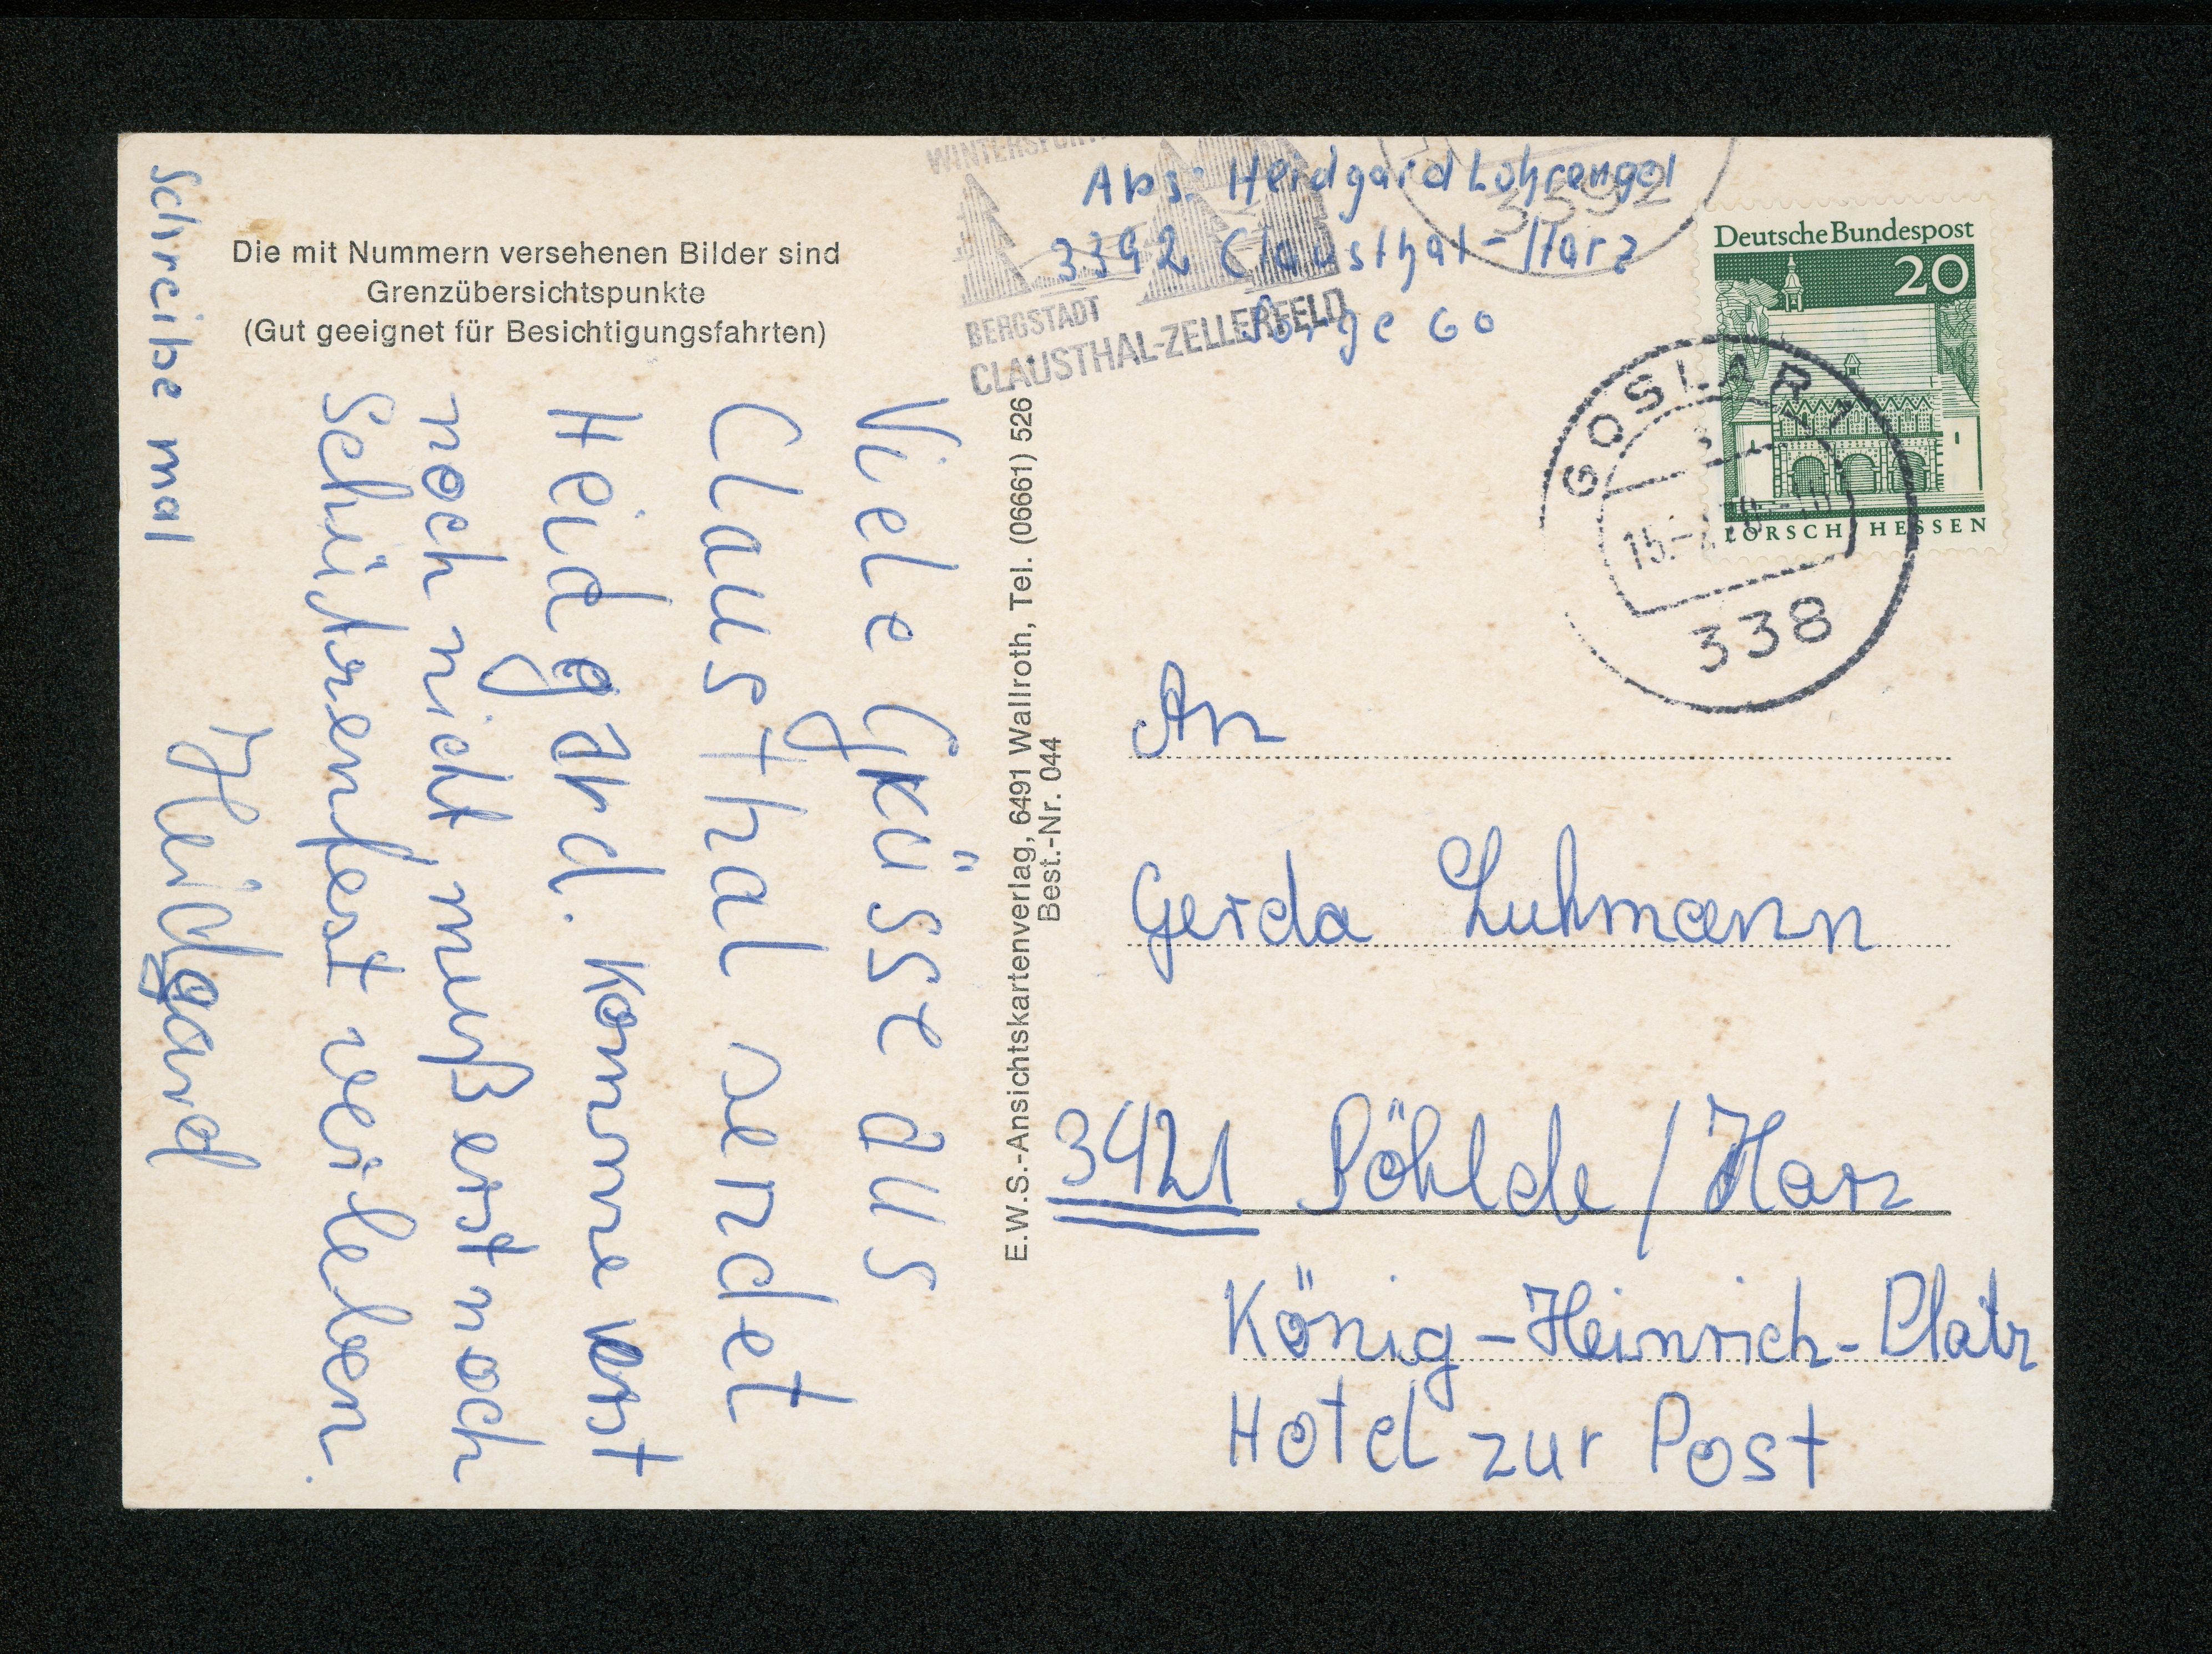 Die mit Nummern versehenen Bilder sind
Grenzübersichtspunkte
(Gut geeignet für Besichtigungsfahrten)
Viele Grüsse aus
Clausthal sendet
Heidgard. Komme erst
noch nicht, muß erst noch
Schützenfest verleben.
Heidgard
schreibe mal
E.W.S.-Ansichtskartenverlag, 6491 Wallroth, Tel. (06661) 526
Best.-Nr. 044
BERGSTADT
CLAUSTHAL-ZELLERFELD
3392
Abs: Heidgard Lohrengel
3392 Clausthal-Harz
Sorge 60
Deutsche Bundespost
20
LORSCH HESSEN
GOSLAR 1
338
An
Gerda Luhmann
3421 Pöhlde / Harz
König-Heinrich-Platz
Hotel zur Post